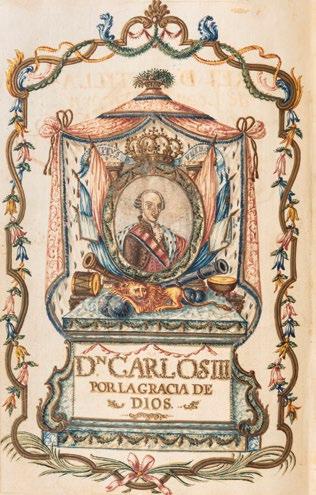 Dⁿ CARLOS III
POR LA GRACIA DE
DIOS.